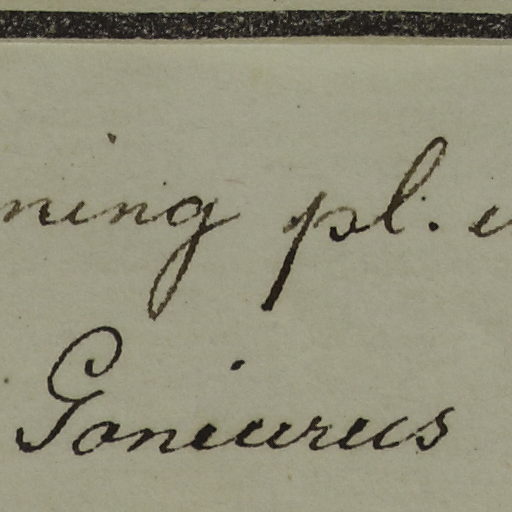 ning pl.
Goniurus